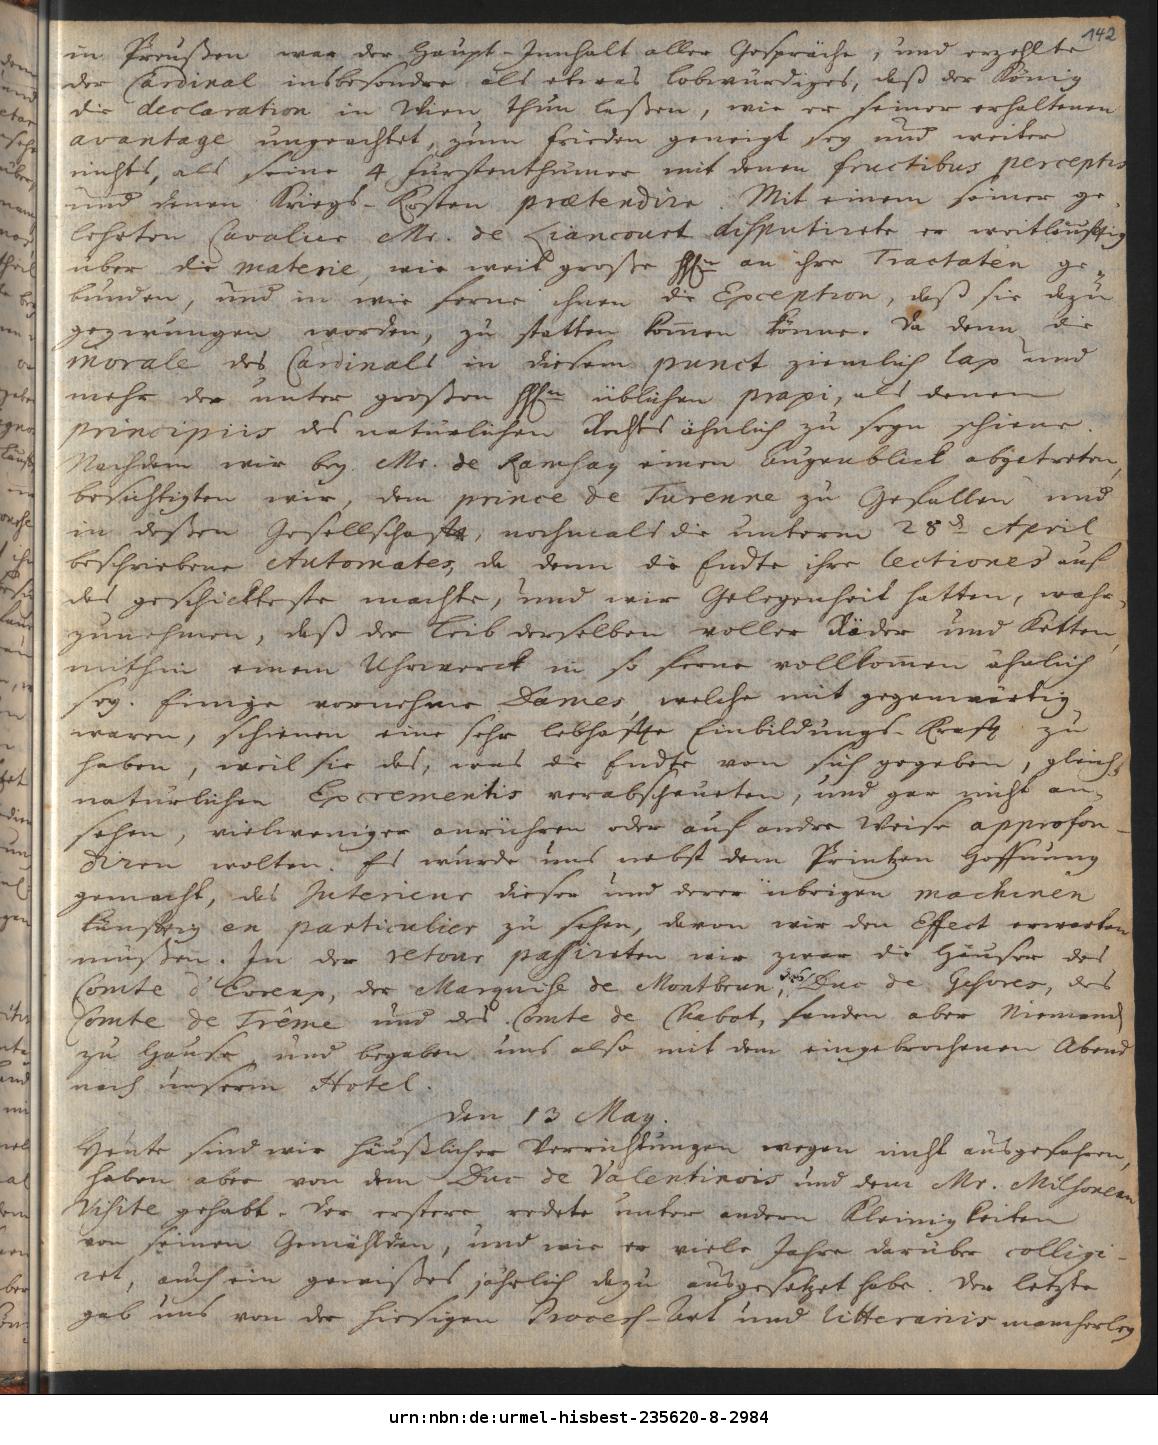 142
in Preußen war der Haupt-Innhalt aller Gespräche, und erzehlte
der Cardinal insbesondre als etwas lobwürdiges, daß der König
die declaration in Wien thun laßen, wie er seiner erhaltenen
avantage ungeachtet, zum Frieden geneigt sey und weiter
nichts, als seine 4 Fürstenthümer mit denen fructibus perceptis
und denen Kriegs-Kosten prætendire. Mit einem seiner ge-
lehrten Cavalier Mr. de Liancourt disputirete er weitläufftig
über die materie, wie weit große an ihre Tractaten ge-
bunden, und in wie ferne ihnen die Exception, daß sie dazu
gezwungen worden, zu statten kom̅en könne. Da denn die
morale des Cardinals in diesem punct ziemlich lax und
mehr der unter großen üblichen praxi, als denen
principiis des natürlichen Rechts ähnlich zu seyn schiene.
Nachdem wir bey Mr. de Ramsay einen Augenblick abgetreten,
besichtigten wir, dem prince de Turenne zu Gefallen und
in deßen Gesellschafft, nochmals die unterm 28 April
beschriebene Automates, da denn die Endte ihre lectiones auf
das geschickteste machte, und wir Gelegenheit hatten, wahr-
zunehmen, daß der Leib derselben voller Räder und Ketten,
mithin einem Uhrwerck in so ferne vollkom̅en ähnlich
sey. Einige vornehme Dames, welche mit gegenwärtig
waren, schienen eine sehr lebhaffte Einbildungs-Krafft zu
haben, weil sie das, was die Endte von sich gegeben, gleich
natürlichen Excrementis verabscheueten, und gar nicht an-
sehen, vielweniger anrühren oder auf andre Weise approfon-
diren wolten. Es wurde uns nebst dem Printzen Hoffnung
gemacht, das Interieur dieser und derer übrigen machinen
künfftig en particulier zu sehen, davon wir den Effect erwarten
müßen. In der retour passireten wir zwar die Häuser des
Comte d'Evreux, der Marquise de Montbrun, des Duc de Gesvres, des
Comte de Trême und des Comte de Chabot, fanden aber Niemand
zu Hause, und begaben uns also mit dem eingebrochenen Abend
nach unserm Hotel.
Den 13 May.
Heute sind wir häußlicher Verrichtungen wegen nicht ausgefahren,
haben aber von dem Duc de Valentinois und dem Mr. Milsoneau
Visite gehabt. Der erstere redete unter andern Kleinigkeiten
von seinen Gemählden, und wie er viele Jahre darüber colligi-
ret, auch ein gewißes jährlich dazu ausgesetzet habe. Der letzte
gab uns von der hiesigen Process-Art und litterariis mancherley
urn:nbn:de:urmel-hisbest-235620-8-2984